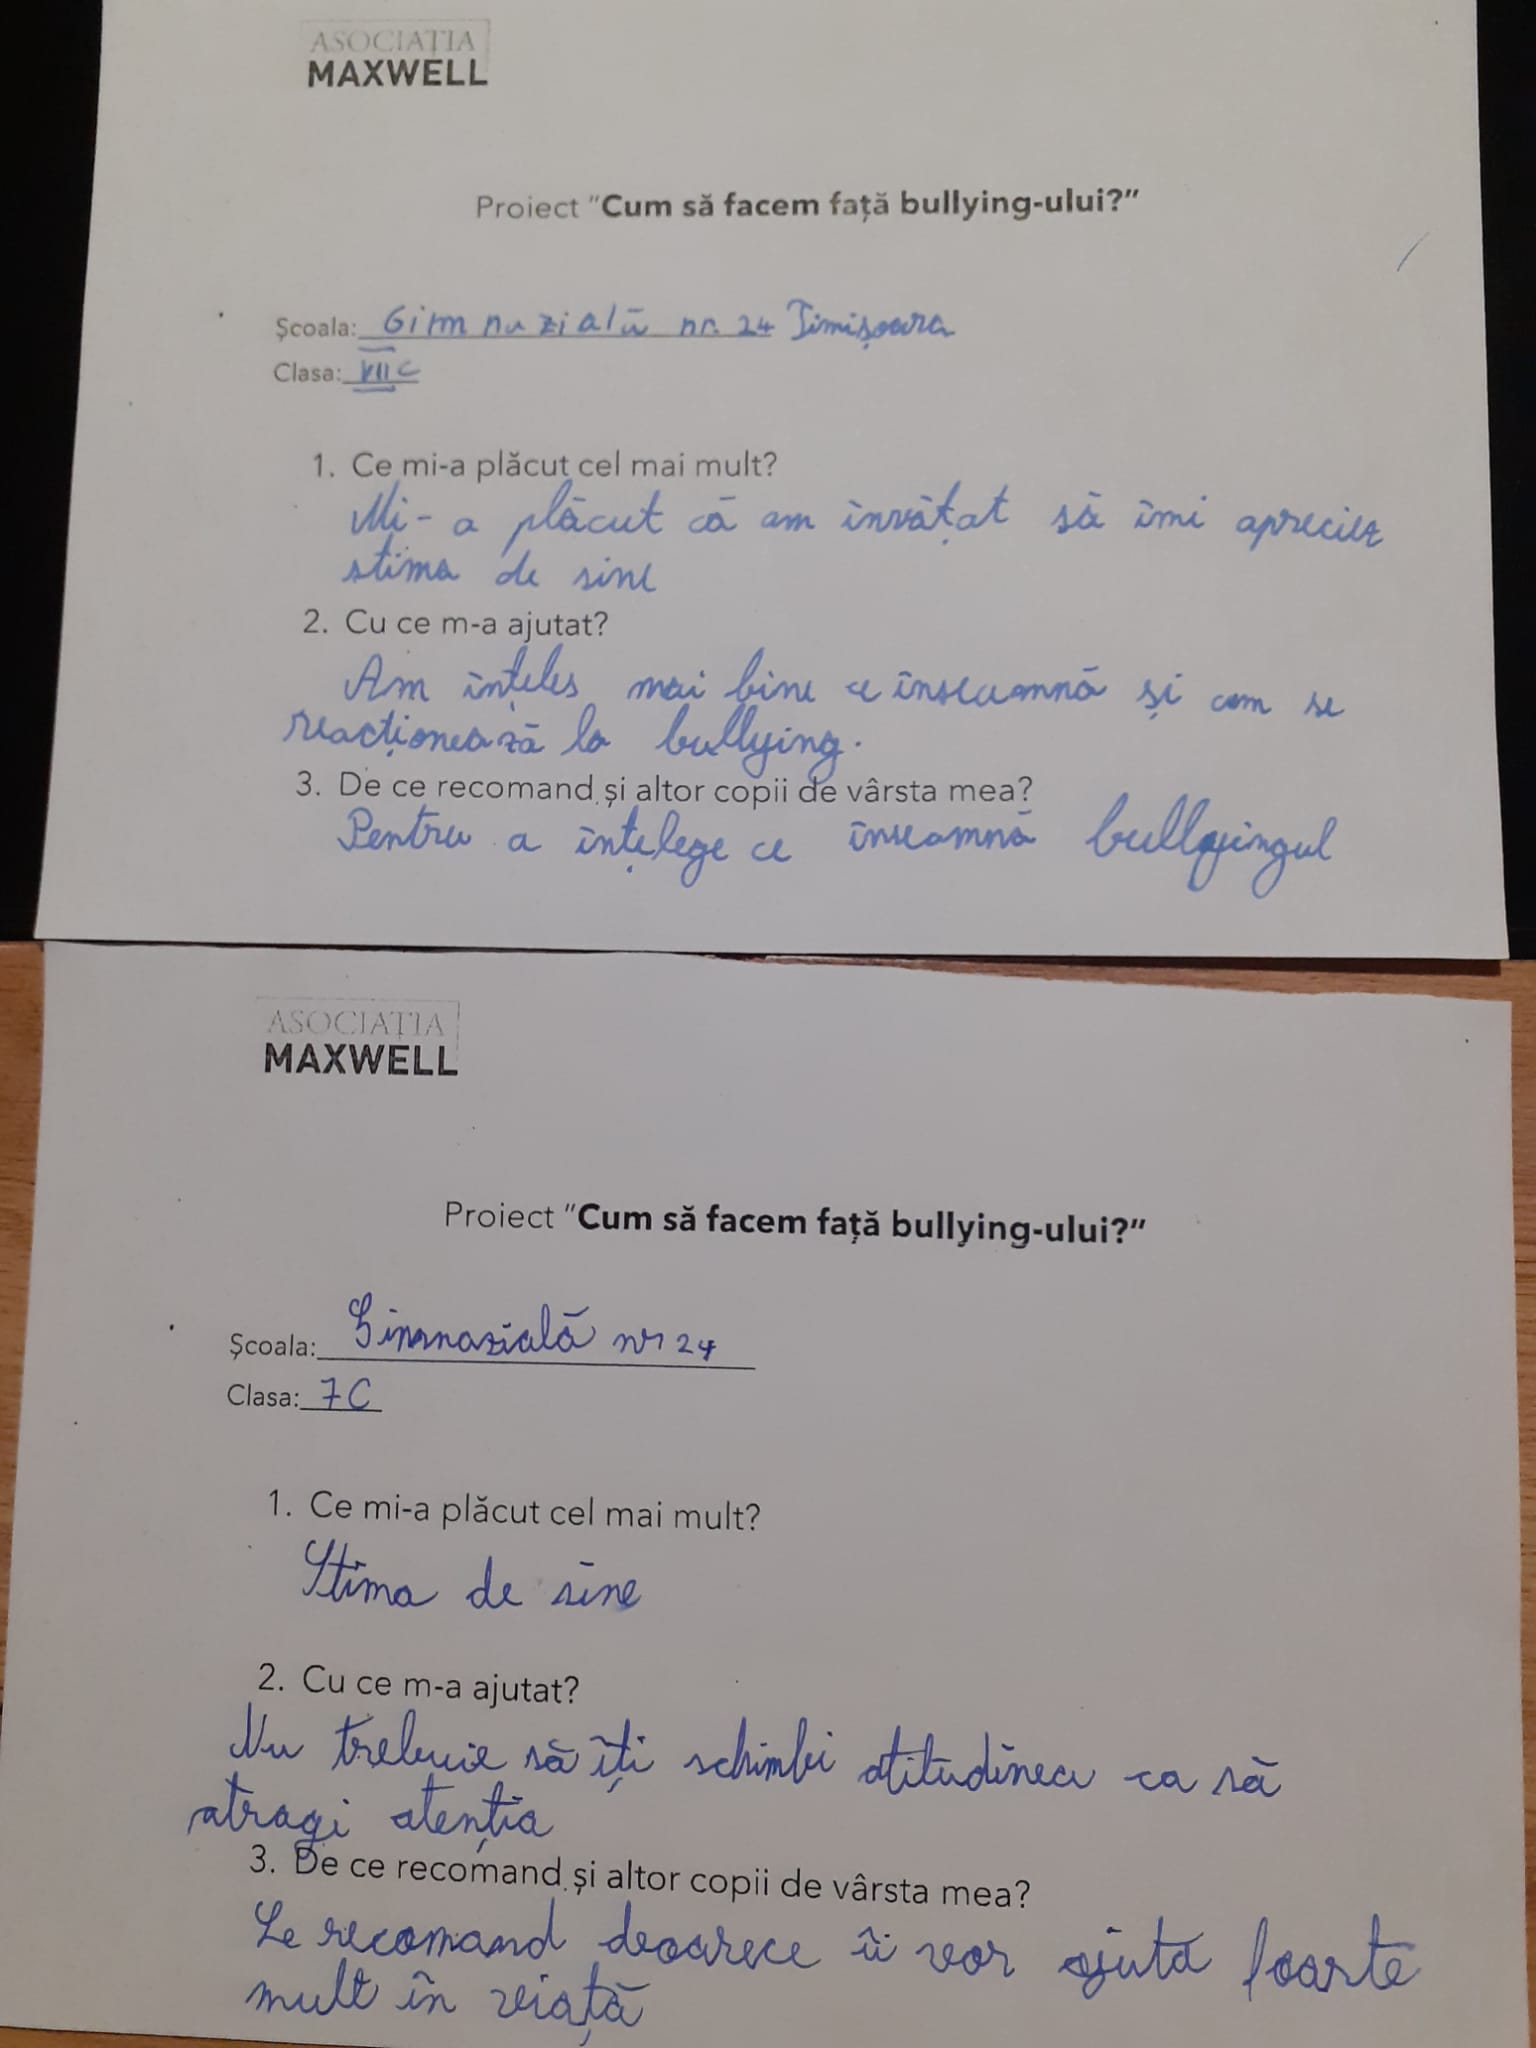 ASOCIAȚIA
MAXWELL
Proiect "Cum să facem față bullying-ului?"
Școala: Gimnazială nr. 24 Timișoara
Clasa: VII C
1. Ce mi-a plăcut cel mai mult?
Mi-a plăcut că am învățat să îmi apreciez
stima de sine
2. Cu ce m-a ajutat?
Am înțeles mai bine ce înseamnă și cum se
reacționează la bullying.
3. De ce recomand și altor copii de vârsta mea?
Pentru a înțelege ce înseamnă bullyingul
ASOCIAȚIA
MAXWELL
Proiect "Cum să facem față bullying-ului?"
Școala: Gimnazială nr 24
Clasa: 7C
1. Ce mi-a plăcut cel mai mult?
Stima de sine
2. Cu ce m-a ajutat?
Nu trebuie să îți schimbi atitudinea ca să
atragi atenția
3. De ce recomand și altor copii de vârsta mea?
Le recomand deoarece îi vor ajuta foarte
mult în viață